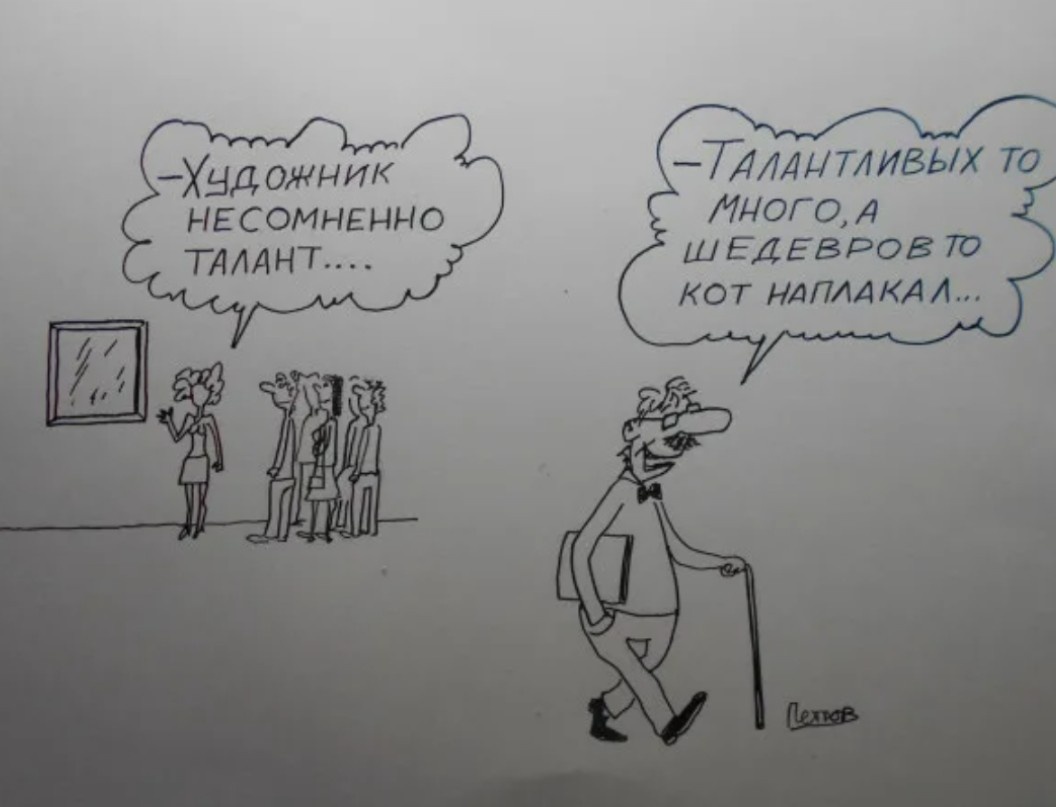 –ХУДОЖНИК
НЕСОМНЕННО
ТАЛАНТ....
–ТАЛАНТЛИВЫХ ТО
МНОГО, А
ШЕДЕВРОВ ТО
КОТ НАПЛАКАЛ...